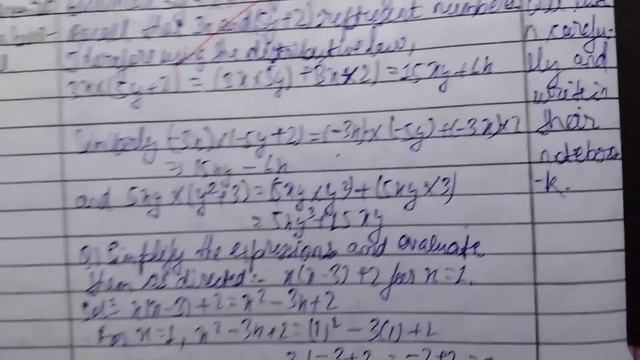 that 3x and (5y+2) represent numbers
Therefore using the distributive law,
3x×(5y+2) = (3x×5y) + (3x×2) = 15xy+6x
Similarly (-3x)×(-5y+2) = (-3x)×(-5y)+(-3x)×2
= 15xy - 6x
and 5xy×(y²+3) = (5xy×y²)+(5xy×3)
= 5xy³+15xy
Simplify the expressions and evaluate
them as directed:- x(x-3)+2 for x=1.
Sol:= x(x-3)+2 = x²-3x+2
For x=1, x²-3x+2 = (1)²-3(1)+2
n carefu-
lly and
write in
their
noteboo-
-k.